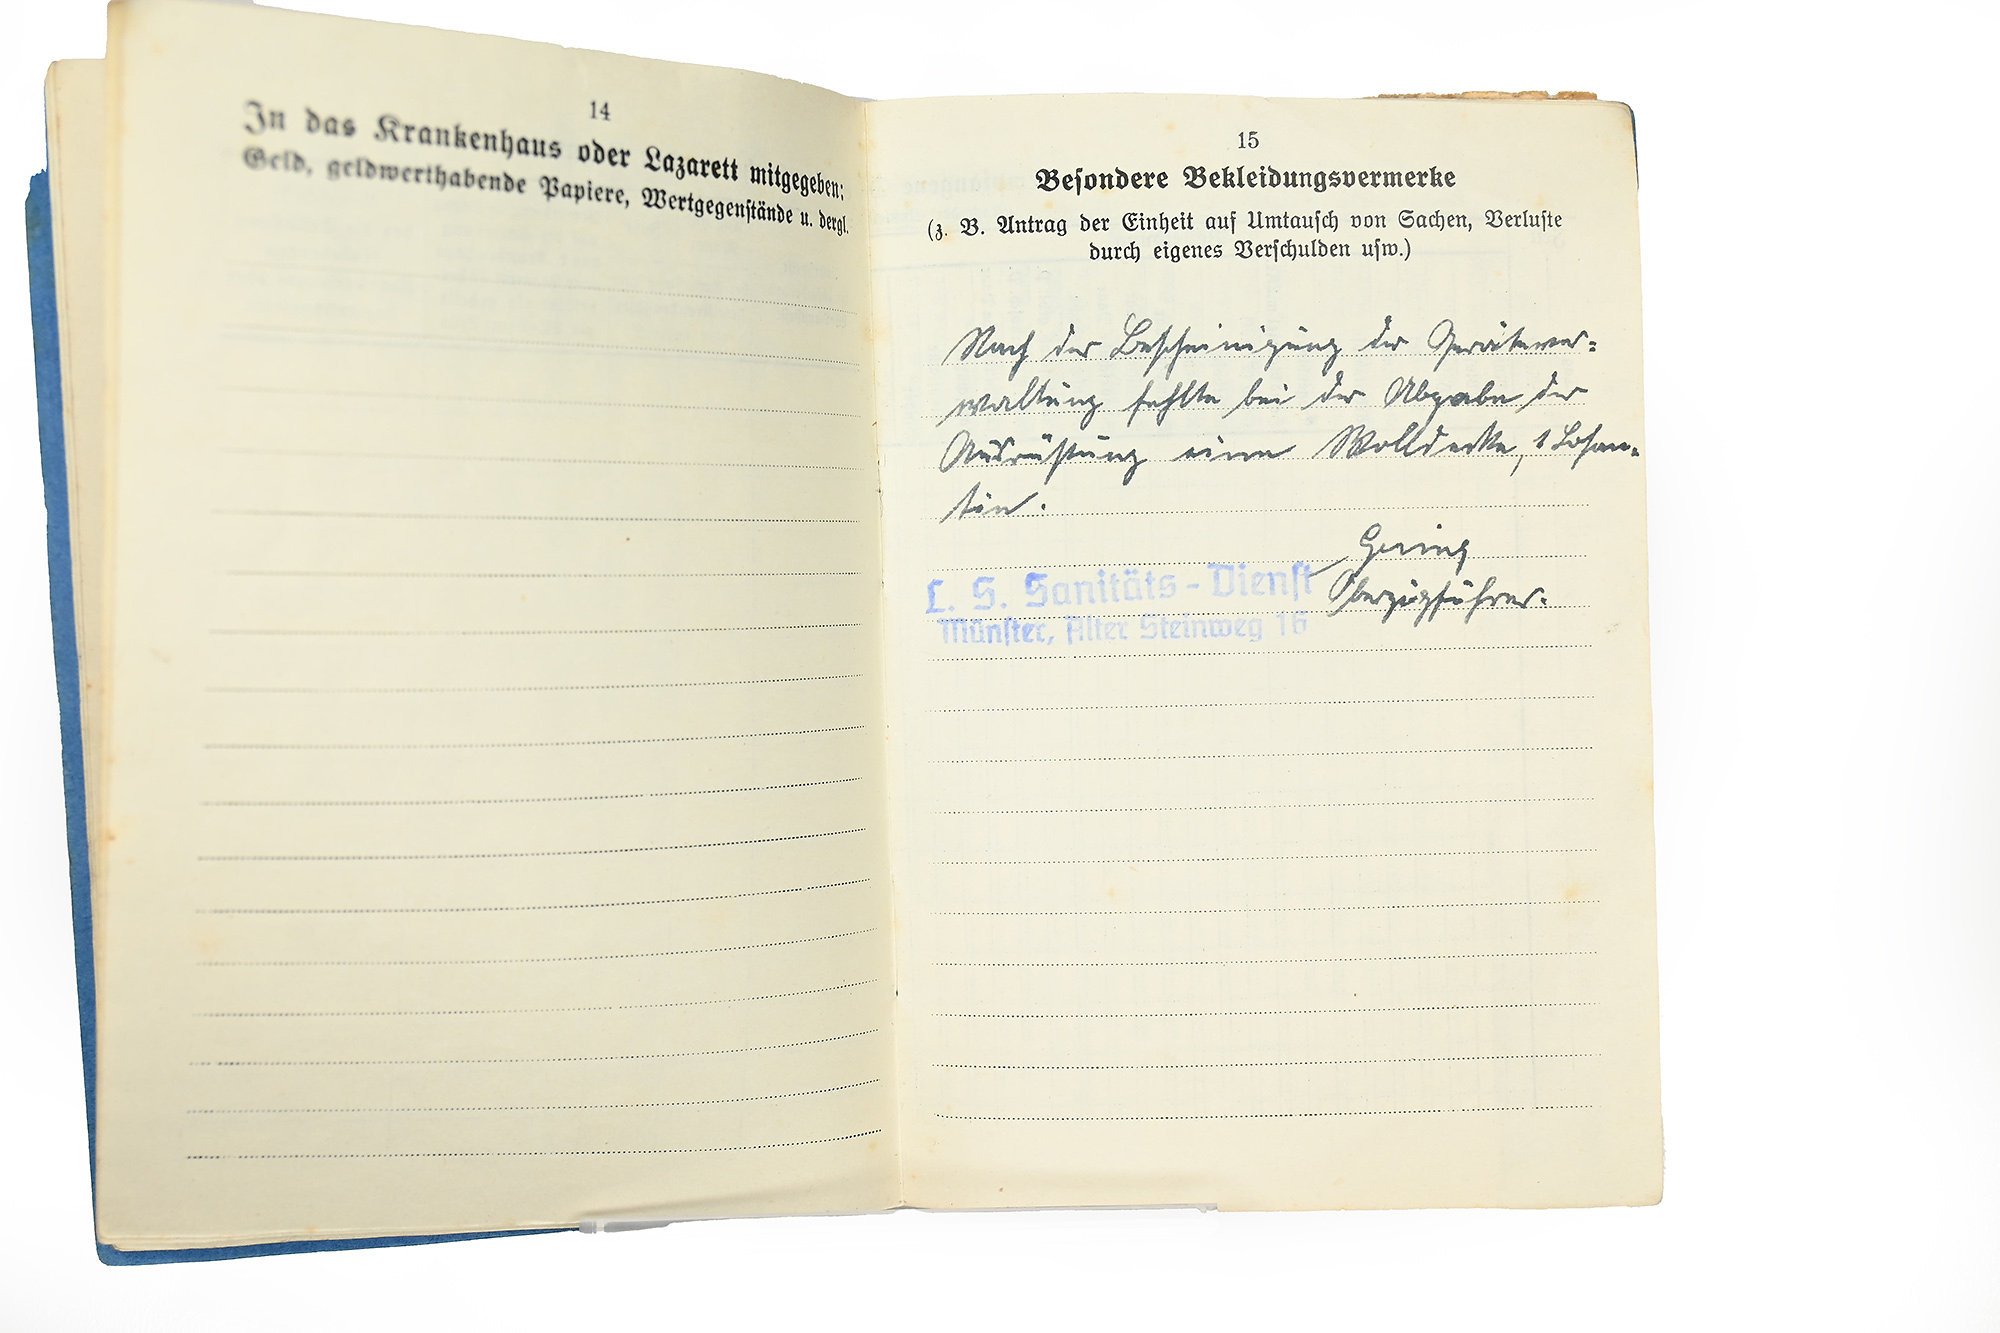 14
In das Krankenhaus oder Lazarett mitgegeben:
Geld, geldwerthabende Papiere, Wertgegenstände u. dergl.
15
Besondere Bekleidungsvermerke
(z. B. Antrag der Einheit auf Umtausch von Sachen, Verluste
durch eigenes Verschulden usw.)
Nach der Bescheinigung der Gerätever-
waltung fehlte bei der Abgabe der
Ausrüstung eine Wolldecke, 1
Gering
Oberzugführer.
L. S. Sanitäts-Dienst
Münster, Alter Steinweg 16